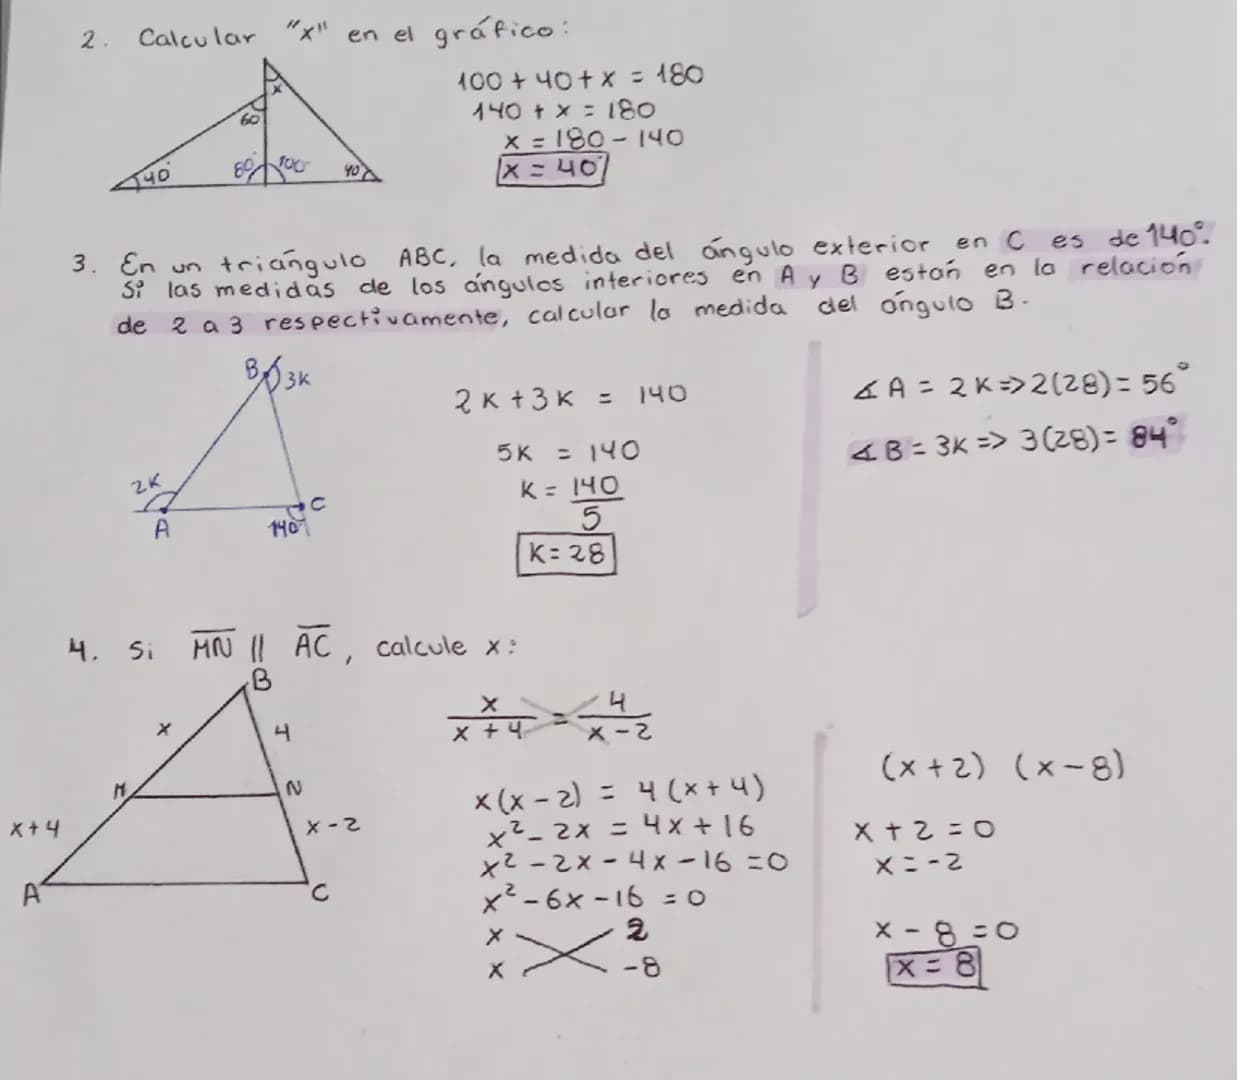 2. Calcular "x" en el gráfico:
x
60
40
80
100
40
100 + 40 + x = 180
140 + x = 180
x = 180 - 140
x = 40
3. En un triángulo ABC, la medida del ángulo exterior en C es de 140°.
Si las medidas de los ángulos interiores en A y B están en la relación
de 2 a 3 respectivamente, calcular la medida del ángulo B.
B 3K
2K
A
C
140
2K + 3K = 140
5K = 140
K = 140
5
K = 28
∡ A = 2K => 2(28) = 56°
∡ B = 3K => 3(28) = 84°
4. Si MN || AC, calcule x:
B
x
4
M
N
x+4
x-2
A
C
x = 4
x + 4 x - 2
x(x - 2) = 4(x + 4)
x² - 2x = 4x + 16
x² - 2x - 4x - 16 = 0
x² - 6x - 16 = 0
x 2
x -8
(x + 2) (x - 8)
x + 2 = 0
x = -2
x - 8 = 0
x = 8